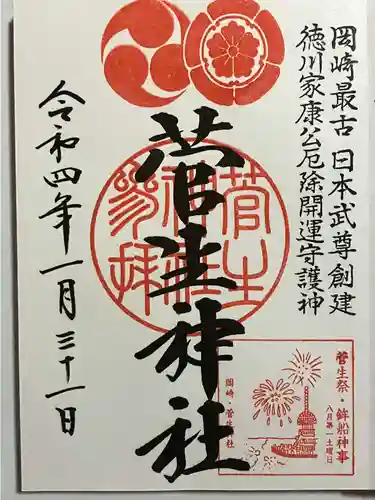 岡崎最古 日本武尊創建
徳川家康公厄除開運守護神
菅生神社
菅生神社参拝
令和四年一月三十一日
菅生祭・鉾船神事
八月第一土曜日
岡崎・菅生神社